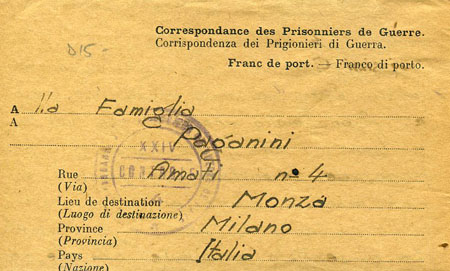 D15-
Correspondance des Prisonniers de Guerre.
Corrispondenza dei Prigionieri di Guerra.
Franc de port. — Franco di porto.
A lla Famiglia
A
Paganini
XXIV
Rue Amati n° 4
(Via)
Lieu de destination Monza
(Luogo di destinazione)
Province Milano
(Provincia)
Pays Italia
(Nazione)